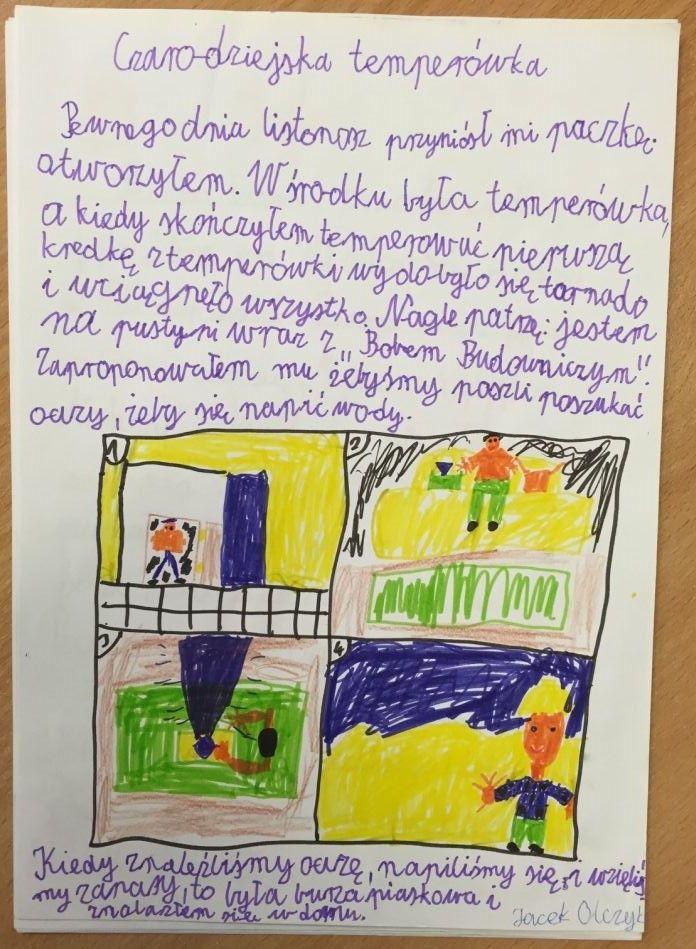 Czarodziejska temperówka
Pewnego dnia listonosz przyniósł mi paczkę.
otworzyłem. W środku była temperówka,
a kiedy skończyłem temperować pierwszą
kredkę z temperówki wydobyło się tornado
i wciągnęło wszystko. Nagle patrzę: jestem
na pustyni wraz z „Bobem Budowniczym".
Zaproponowałem mu żebyśmy poszli poszukać
oazy, żeby się napić wody.
1
2
3
4
Kiedy znaleźliśmy oazę, napiliśmy się, i wzięliś
my zapasy, to była burza piaskowa i
znalazłem się w domu.
Jacek Olczyk